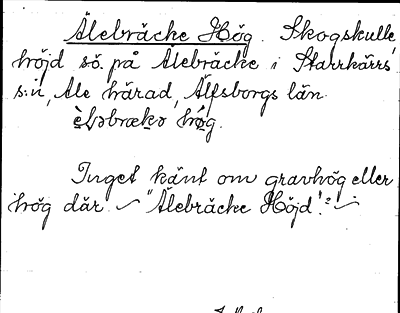 Älebräcke Hög. Skogskulle
höjd sö. på Älebräcke i Starrkärrs
s:n, Ale härad, Älfsborgs län.
Inget känt om gravhög eller
hög där. "Älebräcke Höjd".